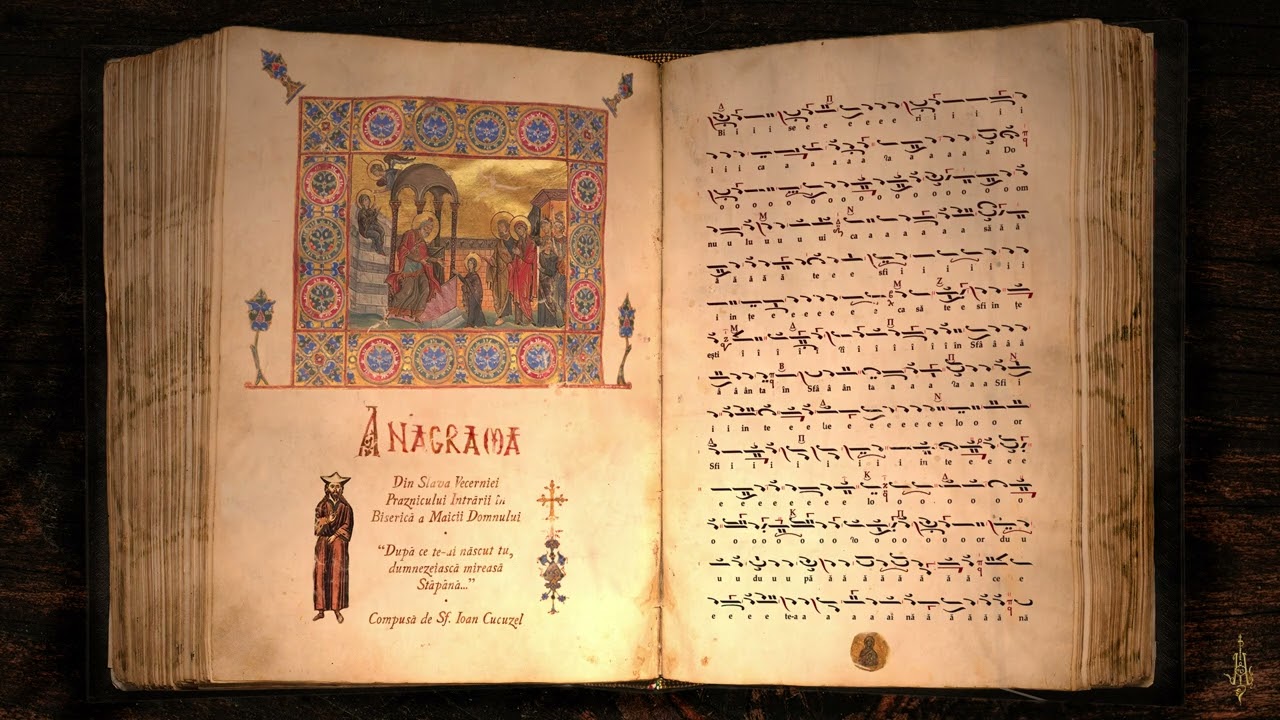 ANAGRAMA
Din Slava Vecerniei
Praznicului Intrării în
Biserică a Maicii Domnului
“După ce te-ai născut tu,
dumnezeiască mireasă
Stăpână...”
Compusă de Sf. Ioan Cucuzel
Δ Π
Bi i i se e e e e e ri i i i i
i i i ca a a a a a ʔa a a a a a Do
o o o o o o o o o o o o o o om
M N
nu u lu u u u ul ca a a a a a să ă ă
ă ă ă ă ă te e e sfi i i i i i i
M Z
in țe e e e e e e ca să te e sfi in țe
M Δ Π
ești i i i i i i i i i i în Sfâ â â â
B Π N
â â ân ta în Sfâ â ân ta a a a a ʔa a a Sfi i
Δ N
i i in te e e e e e e e e lo o o or
Δ Π
Sfi i i i i i i i i i i in te e e e e
K Δ
e e e e e e e e lo o o o o o o o
K Π
o o o o o o o o o o o o or du u
u u du u pă ă ă ă ă ă ă ă ă ce e
e e e e te-a a a a a ai nă ă ă ă ă ă nă